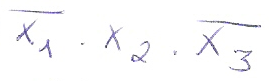 x̅₁ · x₂ · x̅₃